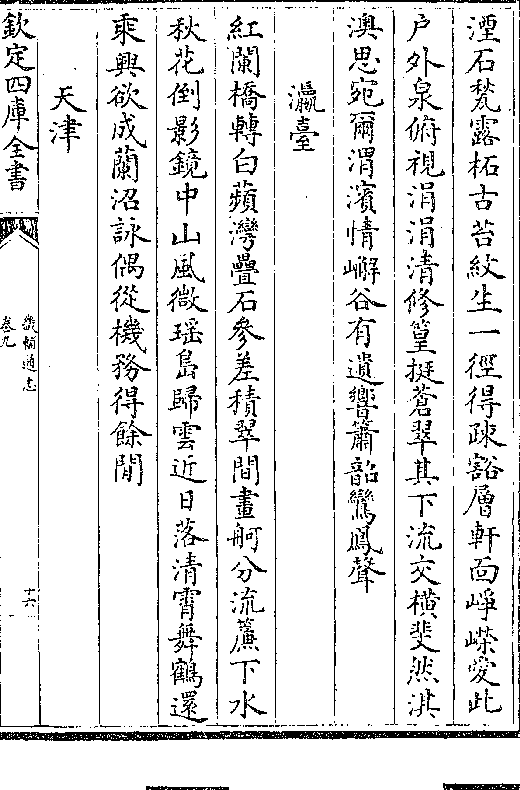 湮石甃露柘古苔紋生一徑得疎豁層軒面崢嶸愛此
户外泉俯視涓涓清修篁挺蒼翠其下流交横斐然淇
澳思宛爾渭濱情嶰谷有遺響簫韶鸞鳳聲
瀛臺
紅闌橋轉白蘋灣疊石參差積翠間畫舸分流簾下水
秋花倒影鏡中山風微瑶島歸雲近日落清霄舞鶴還
乘興欲成蘭沼詠偶從機務得餘閒
天津
欽定四庫全書
畿輔通志
卷九
十六